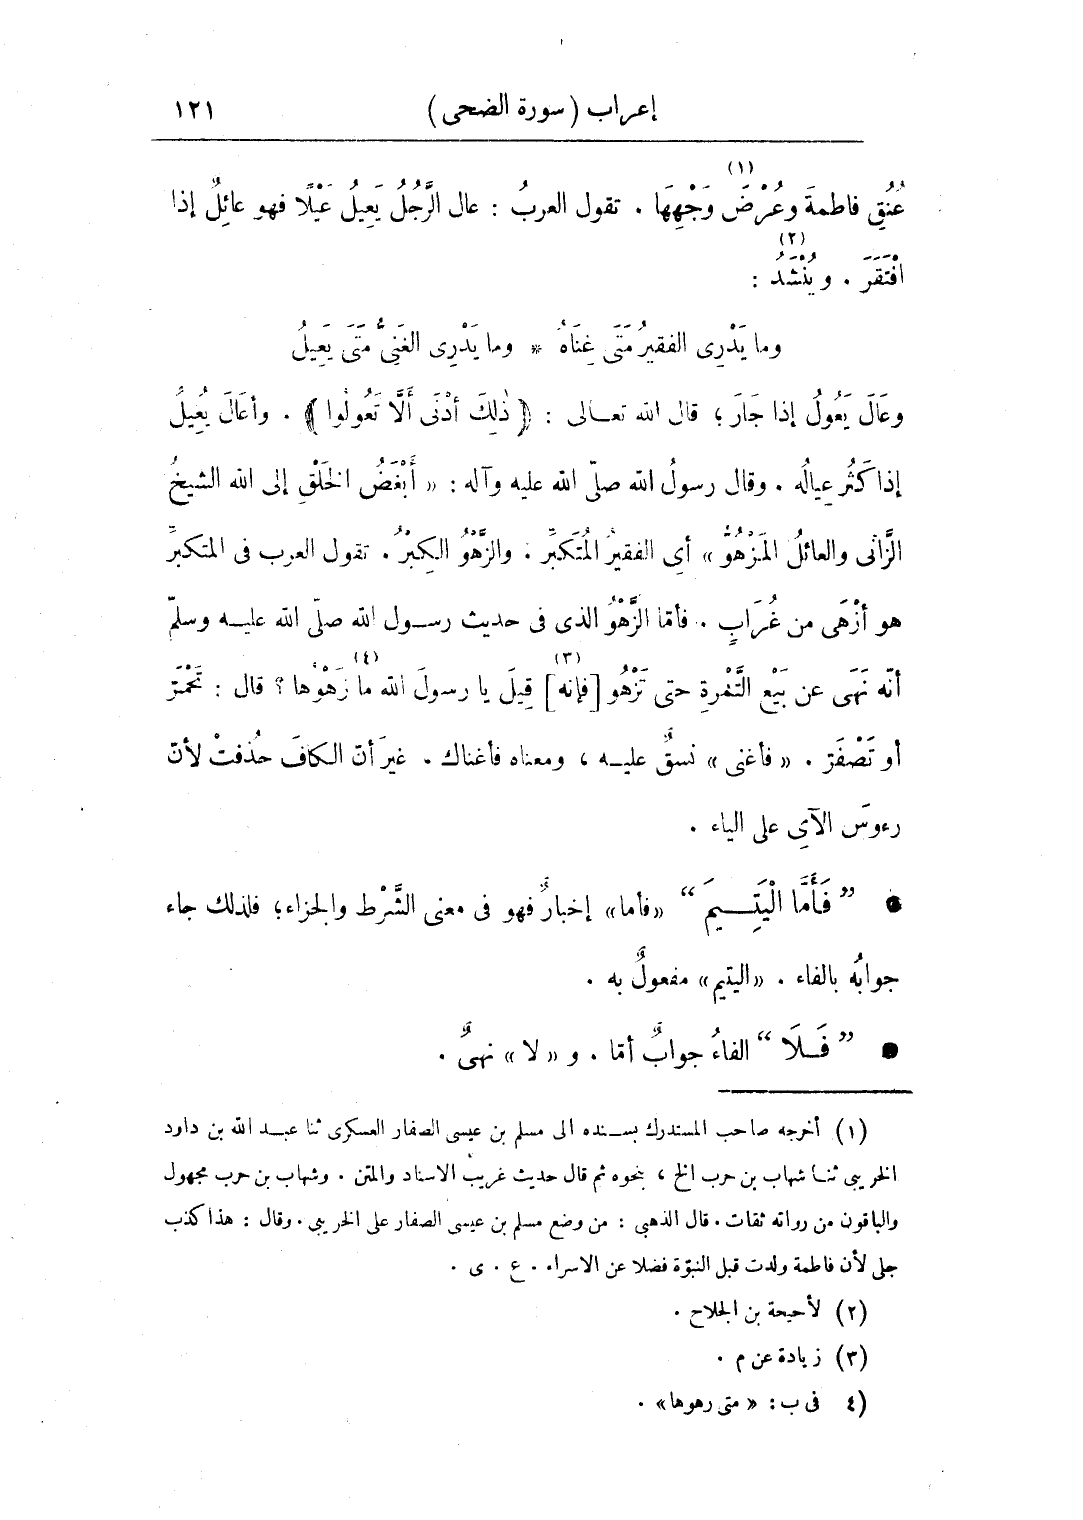 إعراب (سورة الضحى) ١٢١
عُنُقِ فاطمةَ وعُرْضَ وَجْهِهَا (١) . تقول العربُ : عال الرَّجُلُ يَعِيلُ عَيْلًا فهو عائِلٌ إذا
افْتَقَرَ . ويُنْشَدُ (٢) :
وما يَدْرِى الفقيرُ مَتَى غِنَاهُ * وما يَدْرِى الغَنِىُّ مَتَى يَعِيلُ
وعَالَ يَعُولُ إذا جَارَ ؛ قال الله تعـالى : ﴿ ذٰلِكَ أَدْنَى أَلَّا تَعُولُوا ﴾ . وأعَالَ يُعِيلُ
إذا كَثُر عِيالُه . وقال رسولُ الله صلّى الله عليه وآله : « أَبْغَضُ الخَلْقِ إلى الله الشيخُ
الزَّانى والعائلُ المَزْهُوُّ » أى الفقيرُ المُتَكَبِّر . والزَّهْوُ الكِبْرُ . تقول العرب فى المتكبِّر
هو أزْهَى من غُرَابٍ . فأمّا الزَّهْوُ الذى فى حديث رسـول الله صلّى الله عليـه وسلّم
أنّه نَهَى عن بَيْع التَّمْرةِ حتى تَزْهُو [فإنه] (٣) قِيلَ يا رسولَ الله ما زَهْوُها (٤) ؟ قال : تَحْمَرّ
أو تَصْفَرّ . « فأغنى » نسقٌ عليـه ، ومعناه فأغناك . غيرَ أنّ الكافَ حُذفتْ لأنّ
رءوسَ الآىِ على الياء .
● ” فَأَمَّا الْيَتِـيمَ “ «فأما» إخبارٌ فهو فى معنى الشَّرْط والجزاء؛ فلذلك جاء
جوابُه بالفاء . «اليتيم» مفعولٌ به .
● ” فَـلَا “ الفاءُ جوابٌ أمّا . و « لا » نهىٌ .
(١) أخرجه صاحب المستدرك بسـنده الى مسلم بن عيسى الصفار العسكرى ثنا عبـد الله بن داود
الخريبى ثنـا شهاب بن حرب الخ ، بنحوه ثم قال حديث غريب الاسناد والمتن . وشهاب بن حرب مجهول
والباقون من رواته ثقات . قال الذهبى : من وضع مسلم بن عيسى الصفار على الخريبى . وقال : هذا كذب
جلى لأن فاطمة ولدت قبل النبوّة فضلا عن الاسراء . ع . ى .
(٢) لأحيحة بن الجلاح .
(٣) زيادة عن م .
٤) فى ب : « متى رهوها» .